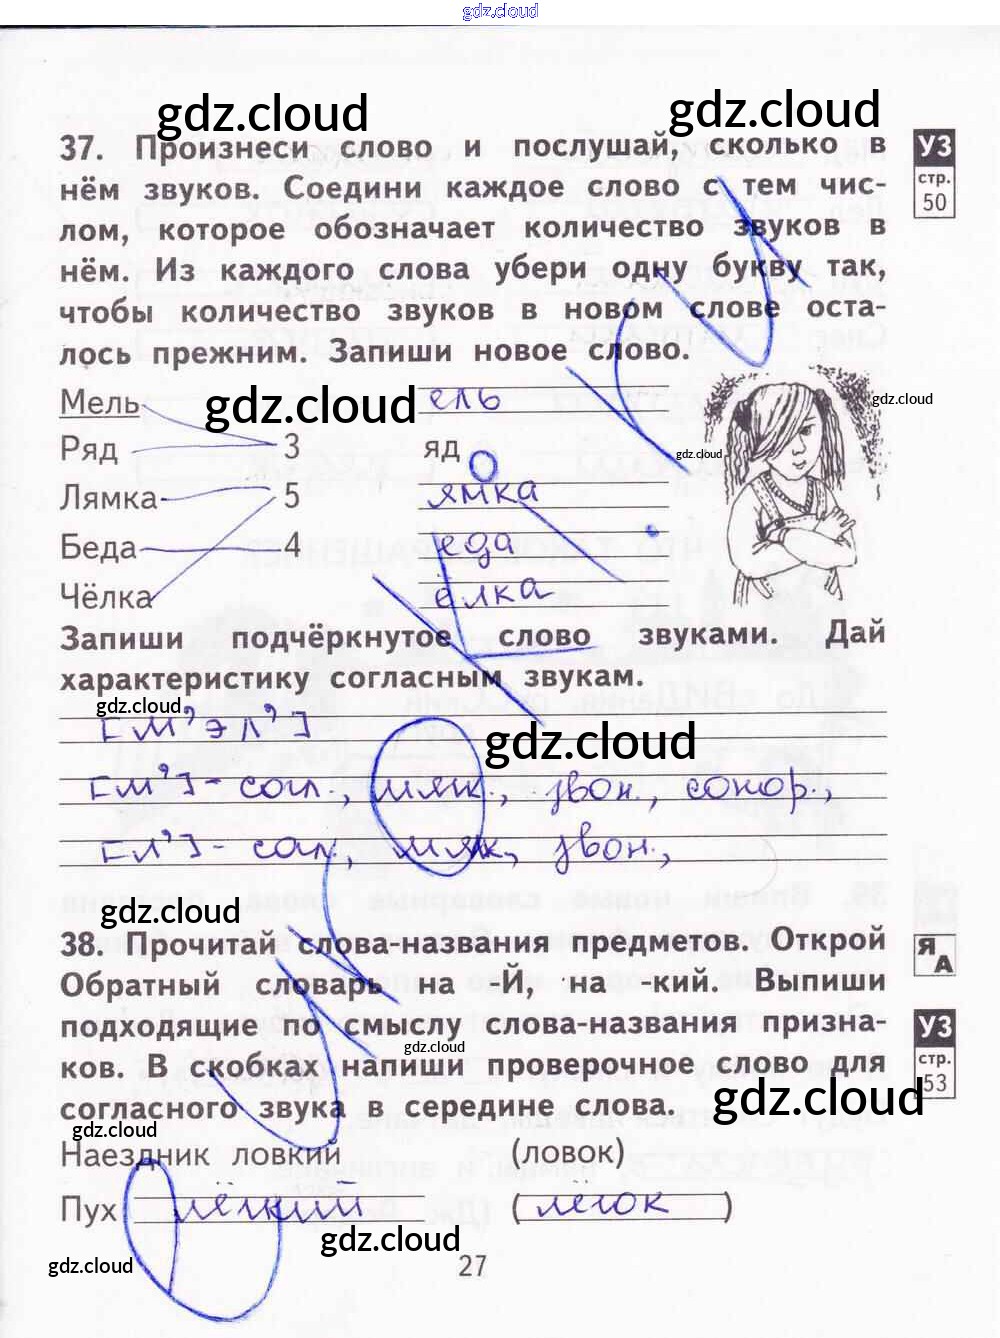 gdz.cloud
gdz.cloud
gdz.cloud
37. Произнеси слово и послушай, сколько в
УЗ
нём звуков. Соедини каждое слово с тем чис-
стр.
50
лом, которое обозначает количество звуков в
нём. Из каждого слова убери одну букву так,
чтобы количество звуков в новом слове оста-
лось прежним. Запиши новое слово.
Мель
gdz.cloud
ель
gdz.cloud
Ряд
3
яд
gdz.cloud
Лямка
5
ямка
Беда
4
еда
Чёлка
ёлка
Запиши подчёркнутое слово звуками. Дай
характеристику согласным звукам.
gdz.cloud
[м’эл’]
gdz.cloud
[м’]- согл., мяк., звон., сонор.,
[л’]- сал., мяк., звон.,
gdz.cloud
38. Прочитай слова-названия предметов. Открой
Я
А
Обратный словарь на -Й, на -кий. Выпиши
подходящие по смыслу слова-названия призна-
УЗ
gdz.cloud
ков. В скобках напиши проверочное слово для
стр.
53
gdz.cloud
согласного звука в середине слова.
gdz.cloud
Наездник ловкий (ловок)
Пух лёгкий (лёгок)
gdz.cloud
gdz.cloud
27